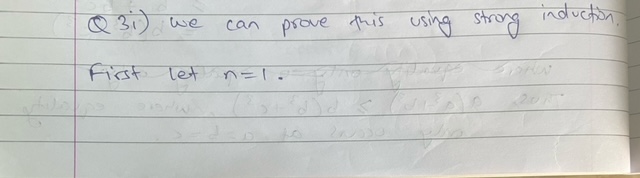 Q 3i) we can prove this using strong induction.
First let n=1.